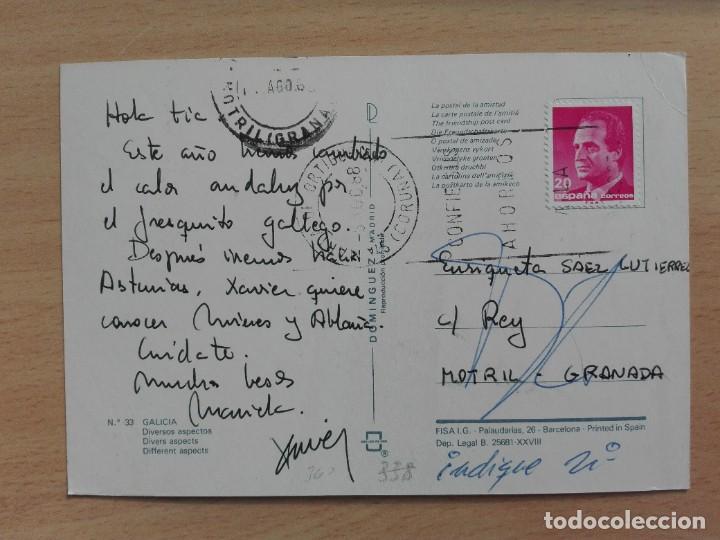 AGO.8
TRILIGRANA
Hola tia
Este año hemos cambiado
el calor andaluz por
el fresquito gallego.
Después iremos hacia
Asturias, Xavier quiere
conocer Mieres y Ablaña.
Cuidate.
Muchos besos
Mariela.
Xavier
N.° 33 GALICIA
Diversos aspectos
Divers aspects
Different aspects
(CORUÑA)
DOMINGUEZ
MADRID
Reproducción prohibida
La postal de la amistad
La carte postale de l'amitié
The friendship post card
Die Freundschaftskarte
O postal de amizade
CONFIE
AHORROS
20
españa correos
Enriqueta SAEZ GUTIERREZ
c/ Rey
MOTRIL - GRANADA
FISA I.G. - Palaudarias, 26 - Barcelona - Printed in Spain
Dep. Legal B. 25681-XXVIII
indique nº
338
todocoleccion
todocoleccion.net